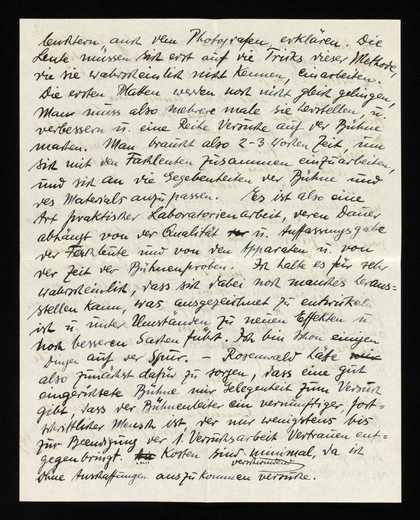 leuchtern auch dem Photografen erklären. Die
Leute müssen sich erst auf die Tricks dieser Methode,
die sie wahrscheinlich nicht kennen, einarbeiten.
Die ersten Platten werden noch nicht gleich gelingen,
Man muss also mehrere male sie herstellen, u.
verbessern u. eine Reihe Versuche auf der Bühne
machen. Man braucht also 2-3 Wochen Zeit, um
sich mit den Fachleuten zusammen einzuarbeiten,
und sich an die Gegebenheiten der Bühne und
des Materials anzupassen. Es ist also eine
Art praktischer Laboratorienarbeit, deren Dauer
abhängt von der Qualität u. Auffassungsgabe
der Fachleute und von den Apparaten u. von
der Zeit der Bühnenproben. Ich halte es für sehr
wahrscheinlich, dass sich dabei noch manches heraus-
stellen kann, was ausgezeichnet zu entwickeln
ist u. unter Umständen zu neuen Effekten u.
noch besseren Sachen führt. Ich bin schon einigen
Dingen auf der Spur. – Rosenwald hätte
also zunächst dafür zu sorgen, dass eine gut
eingerichtete Bühne mir Gelegenheit zum Versuch
gibt, dass der Bühnenleiter ein vernünftiger, fort-
schrittlicher Mensch ist, der mir wenigstens bis
zur Beendigung der 1. Versuchsarbeit Vertrauen ent-
gegenbringt. Kosten sind minimal, da ich
ohne Anschaffungen auszukommen versuche.